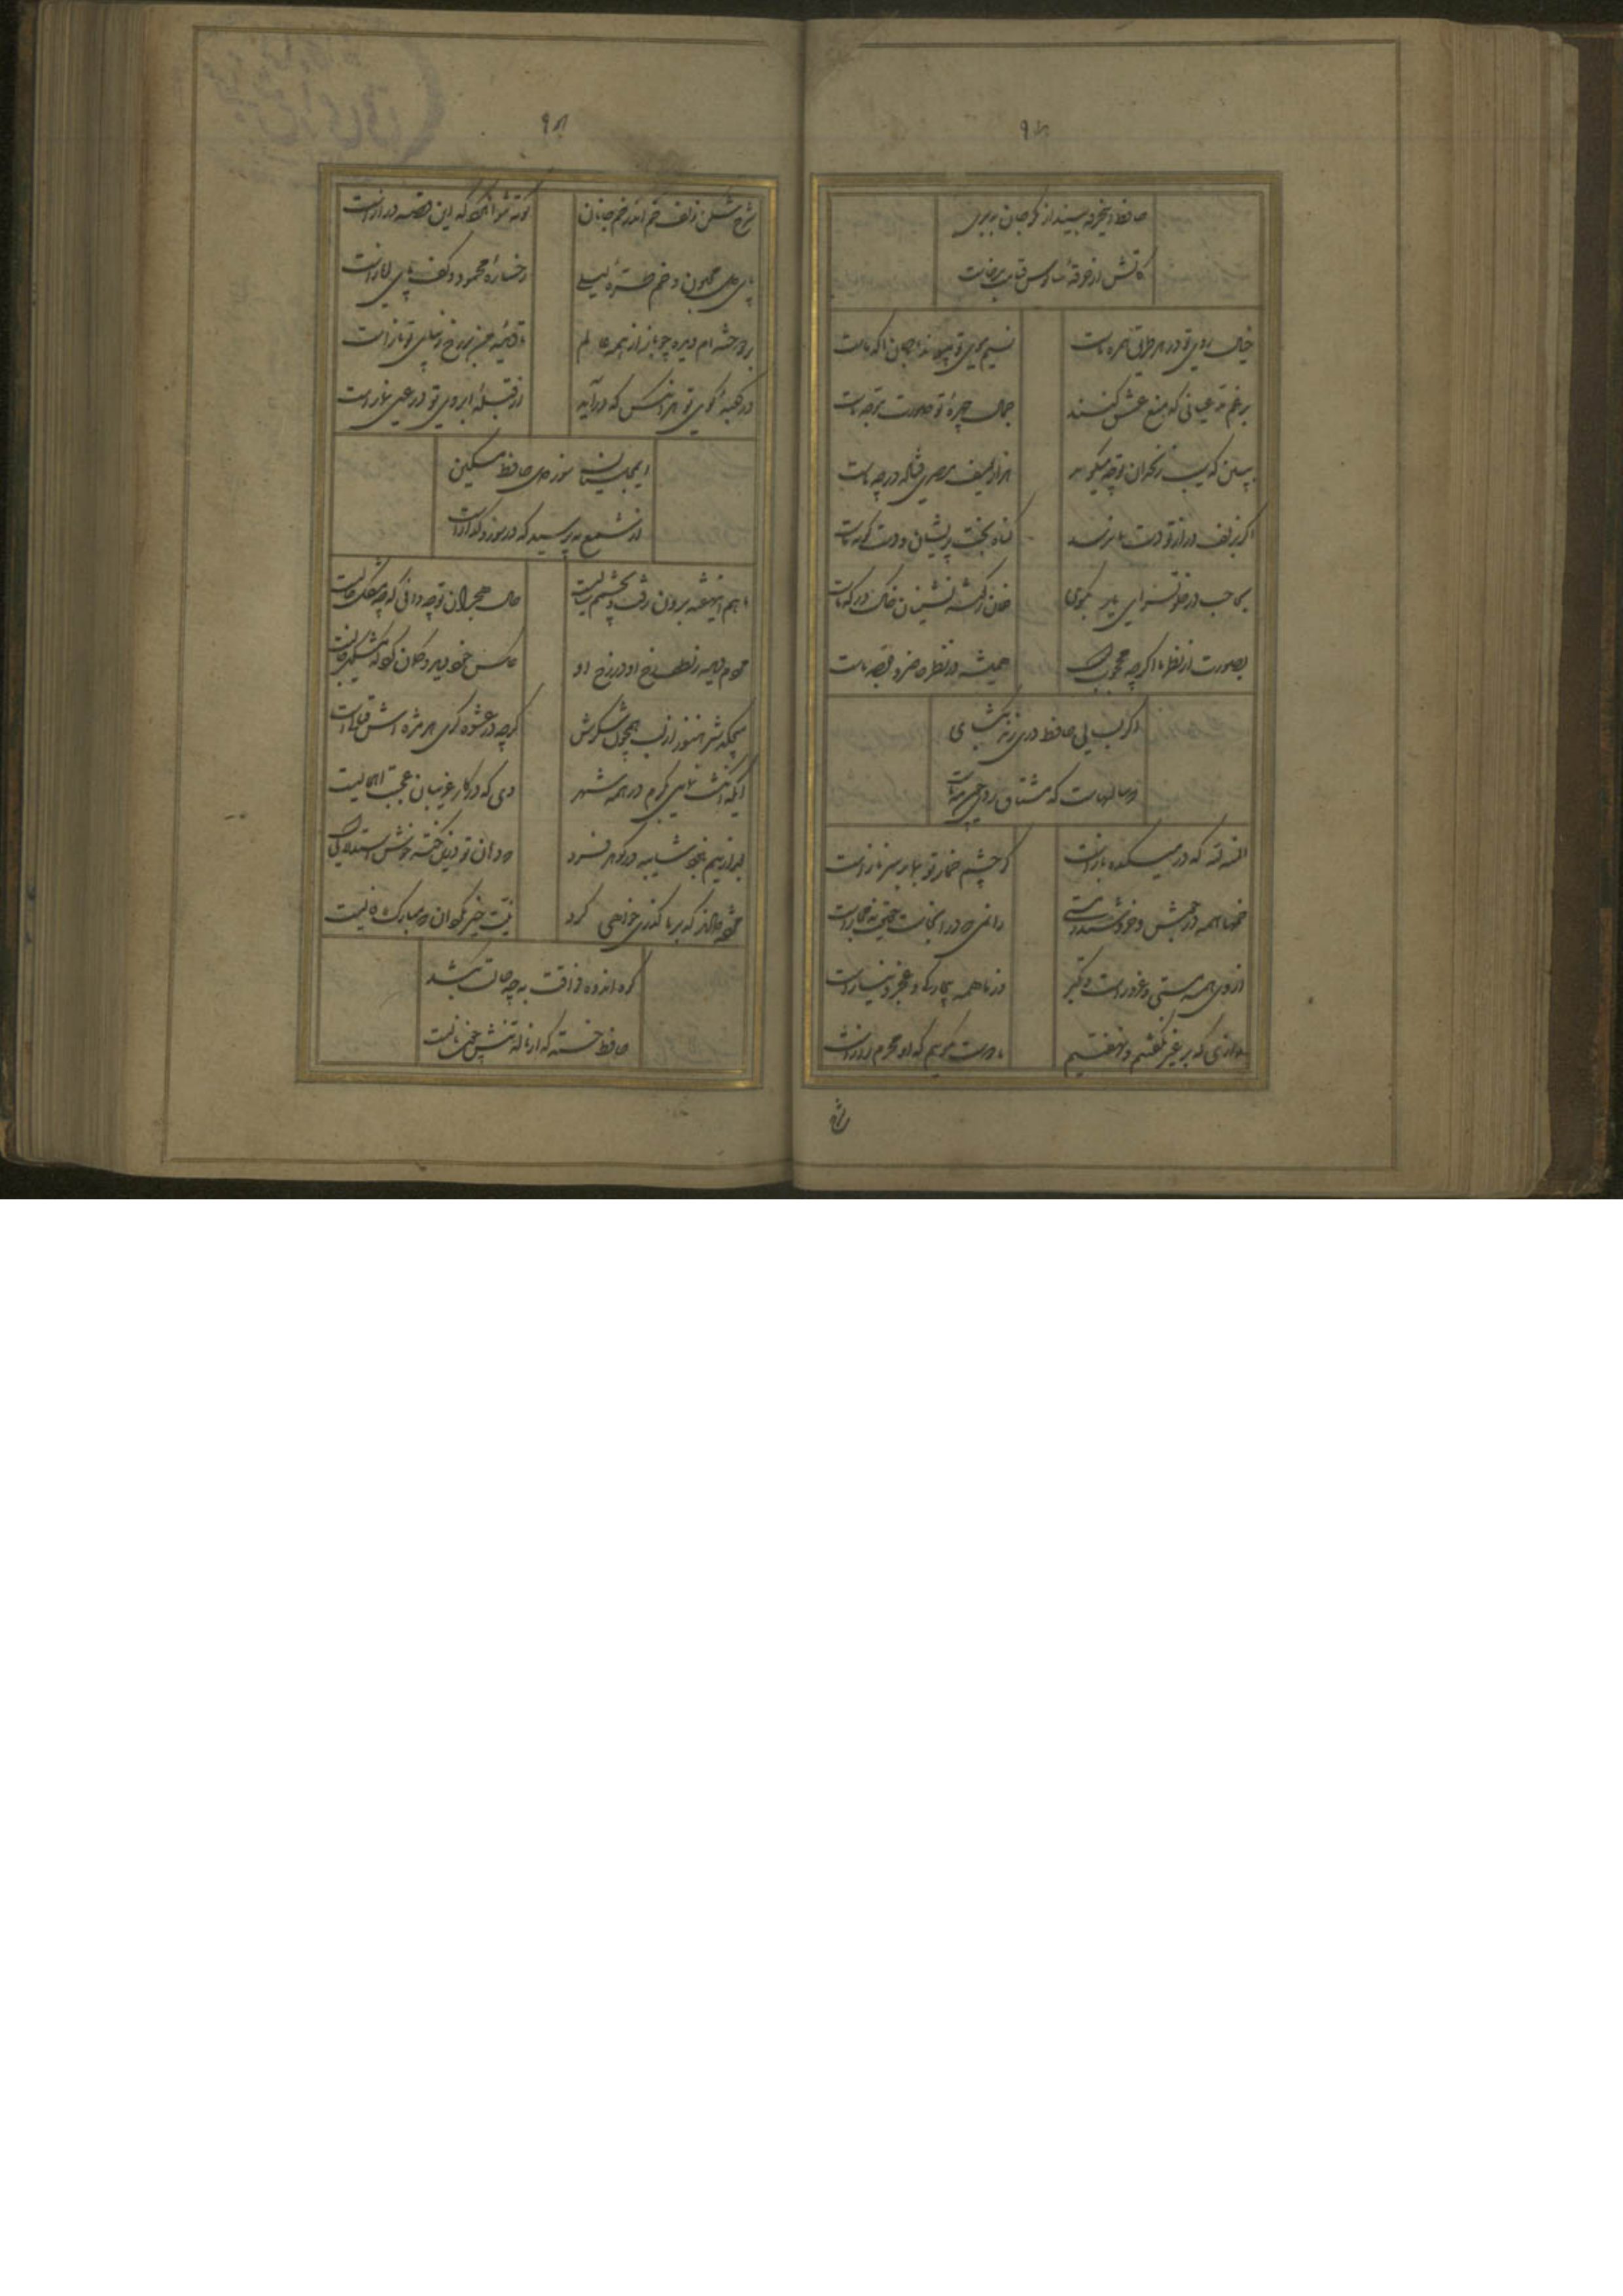 حافظ اینخرقه بینداز که جان ببری
کاتش از خرقهٔ سالوس و کرامت برخاست
خیال روی تو در هر طریق همره ماست
نسیم موی تو پیوند جان آگه ماست
برغم مدعیانی که منع عشق کنند
جمال چهرهٔ تو حجت موجه ماست
ببین که سیب زنخدان تو چه میگوید
هزار یوسف مصری فتاده در چه ماست
اگر بزلف دراز تو دست ما نرسد
گناه بخت پریشان و دست کوته ماست
بحاجب در خلوتسرای بگوی
فلان ز گوشه نشینان خاک درگه ماست
بصورت از نظر ما اگرچه محجوبست
همیشه در نظر خاطر مرفه ماست
اگر بسایی حافظ دری زند بگشای
که سالهاست که مشتاق روی چون مه ماست
المنة لله که در میکده بازاست
که چشم خمار تو
خمها همه در جوش و خروشند ز مستی
وانمی که در آنجاست حقیقت نه مجازاست
از وی همه مستی و غرور است و تکبر
وز ما همه بیچارگی و عجز و نیاز است
رازی که بر غیر نگفتیم و نهفتیم
با دوست بگوییم که او محرم راز است
شرح
۹۱
شرح شکن زلف خم اندر خم جانان
کوته نتوان کرد که این قصه دراز است
بار دل مجنون و خم طرهٔ لیلی
رخسارهٔ محمود و کف پای ایاز است
بردوخته ام دیده چو باز از همه عالم
تا دیدهٔ من بر رخ زیبای تو باز است
در کعبهٔ کوی تو هر آنکس که درآید
از قبلهٔ ابروی تو در عین نماز است
ای مجلسیان سوز دل حافظ مسکین
از شمع بپرسید که در سوز و گداز است
ماهم اینهفته برون رفت و بچشمم سالیست
حال هجران تو چه دانی که چه مشکل حالیست
مردم دیده ز لطف رخ او در رخ او
عکس خود دید و گمان کرد که مشکین خالیست
میچکد شیر هنوز از لب همچون شکرش
گرچه در عشوه گری هر مژه اش قتالیست
ایکه انگشت نمایی بکرم در همه شهر
وه که در کار غریبان عجبت اهمالیست
بعد ازینم نبود شایبه در جوهر فرد
که دهان تو درین نکته خوش استدلالیست
مژده دادند که بر ما گذری خواهی کرد
نیت خیر مگردان که مبارک فالیست
کوه اندوه فراقت به چه حالت بکشد
حافظ خسته که از ناله تنش چون نالیست